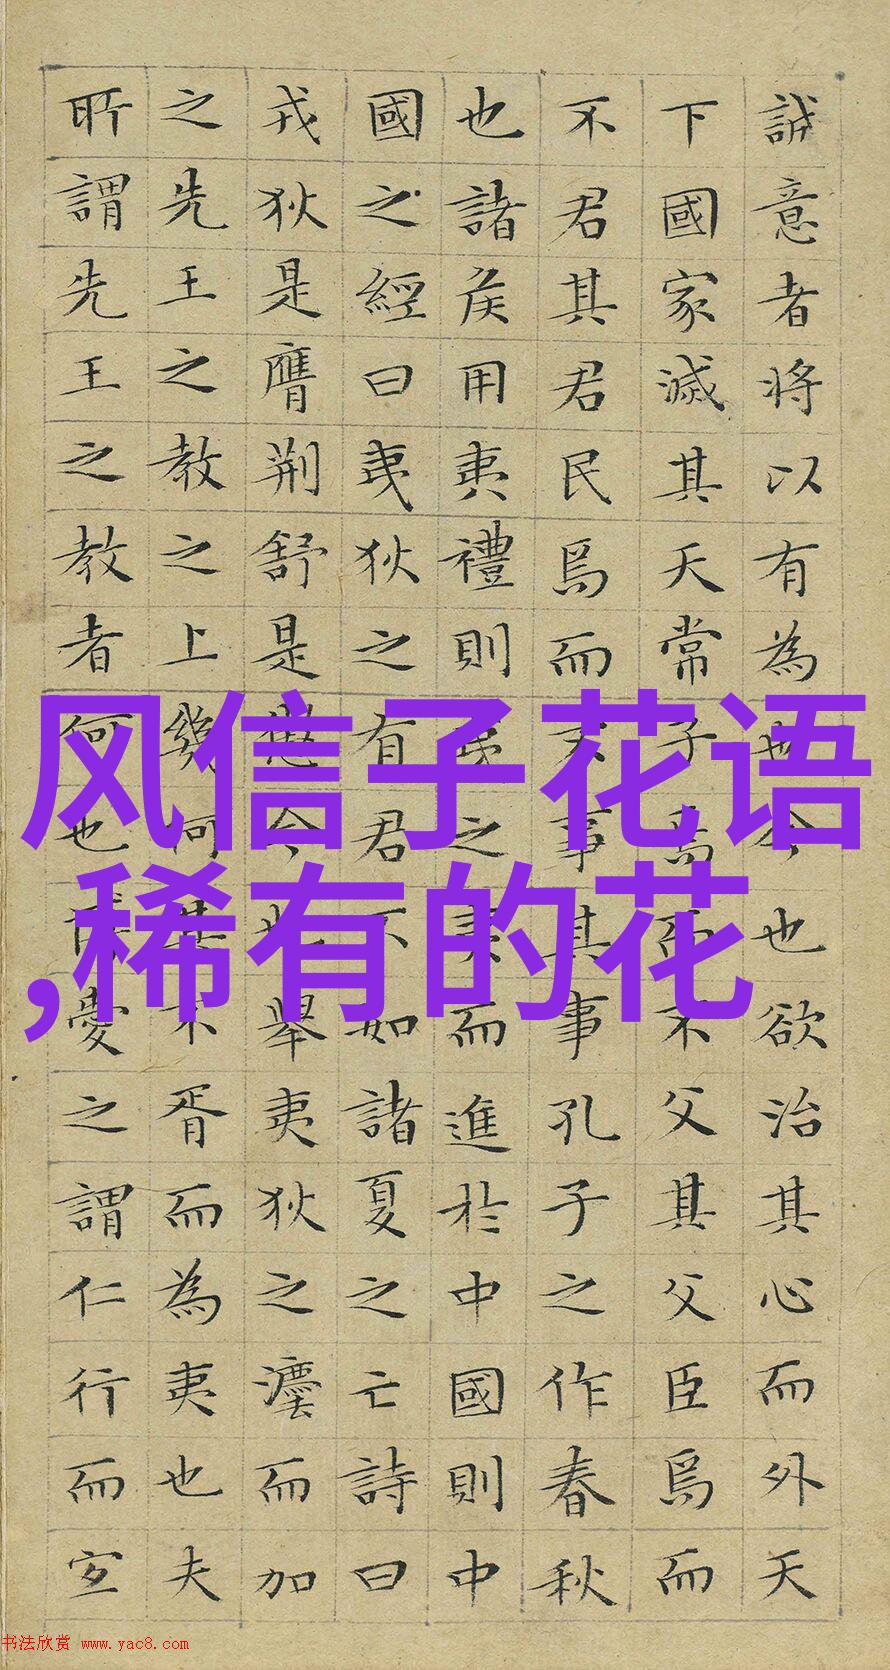 誠意者将以有為也今也欲治其心而外天
下國家滅其天常子焉而不父其父臣焉而
不君其君民焉而不事其事孔子之作春秋
也諸侯用夷禮則夷之夷而進於中國則中
國之經曰夷狄之有君不如諸夏之亡詩曰
戎狄是膺荆舒是懲今也舉夷狄之灋而加
之先王之教之上幾何其不胥而為夷也夫
所謂先王之教者何也博愛之謂仁行而宜
风信子花语
,稀有的花
书法欣赏 www.yac8.com